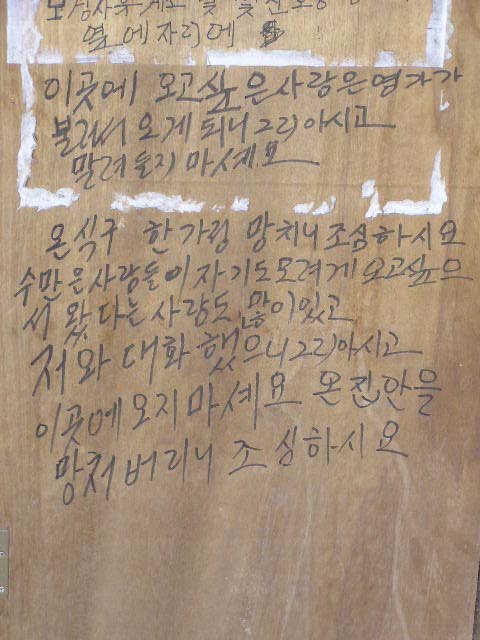 옆에 자리에
이곳에 오고싶은사람은영가가
불려서 오게 되니 그리아시고
말려들지 마세요
온식구 한가정 망치니 조심하시요
수만은사람들이자기도모려게 오고싶으
서 왔다는 사람도 많이있고
저와 대화 했으니그리아시고
이곳에오지마세요 온집안을
망처버리니 조심하시요